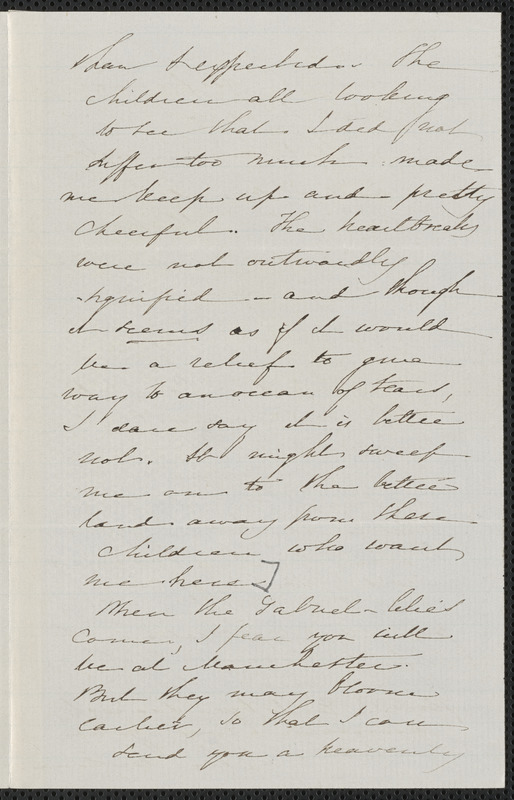 than I expected. The
children all looking
to see that I did not
suffer too much made
me keep up and pretty
cheerful. The heartbreaks
were not outwardly
signified - and though
it seems as if it would
be a relief to give
way to an ocean of tears,
I dare say it is better
not. It might sweep
me on to the better
land away from these
children who want
me here.]
When the Gabriel-lilies
come, I fear you will
be at Manchester.
But they may bloom
earlier, so that I can
send you a heavenly